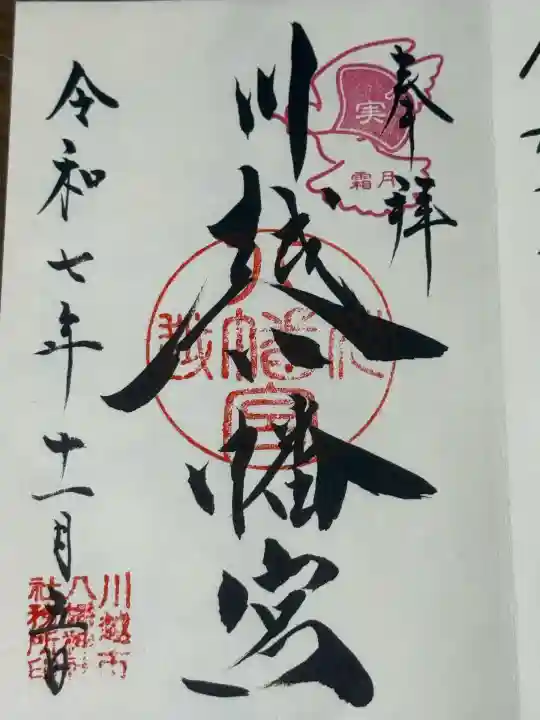 奉拝
実
霜月
川越八幡宮
令和七年十一月五日
川越市
八幡宮
社務所印